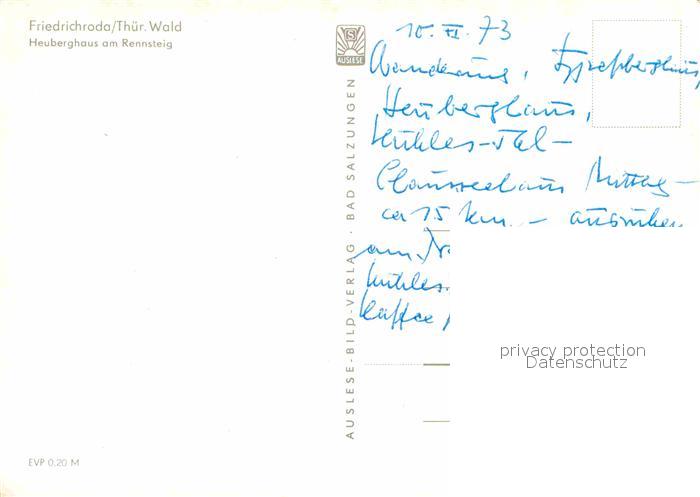 Friedrichroda/Thür. Wald
Heuberghaus am Rennsteig
S
AUSLESE
AUSLESE-BILD-VERLAG · BAD SALZUNGEN
10. VI. 73
Wanderung,
Heuberghaus,
Kühles-Tal-
Mittag-
ca 15 km. - ausruhen
am
Kühles
Kaffee,
privacy protection
Datenschutz
EVP 0,20 M